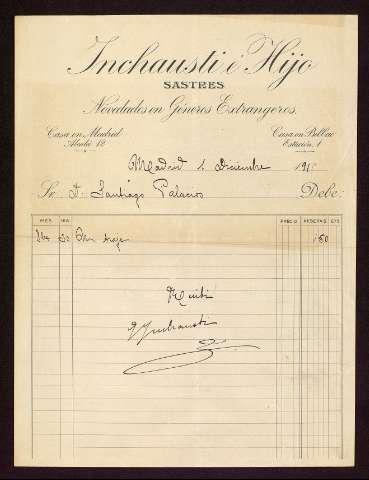 Inchausti é Hijo
SASTRES
Novedades en Géneros Extrangeros.
Casa en Madrid
Alcalá 12
Casa en Bilbao
Estación, 1
Madrid 1 Diciembre 191
Sr. D. Santiago Palacios Debe:
MES DIA PRECIO PESETAS CTS
Un traje 150
Recibí
Inchausti